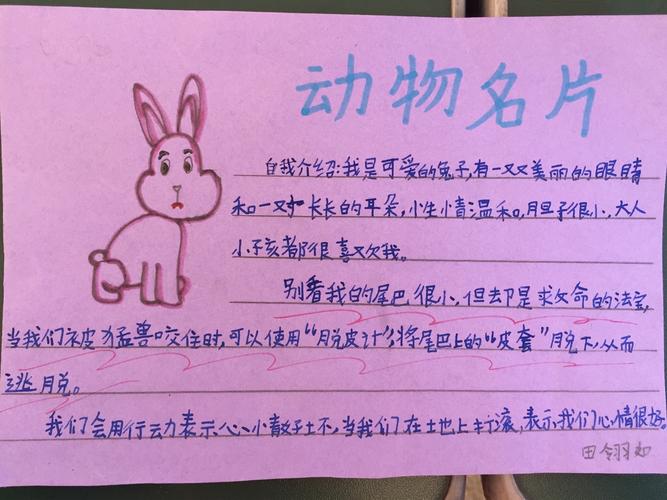 动物名片
自我介绍:我是可爱的兔子,有一双美丽的眼睛
和一双长长的耳朵,小生情温和,胆子很小,大人
小孩都很喜欢我。
别看我的尾巴很小,但却是求命的法宝,
当我们被猛兽咬住时,可以使用“脱皮计”将尾巴上的“皮套”脱下,从而
逃脱。
我们会用行动表示心情好坏,当我们在土地上打滚,表示我们心情很好。
田翎如